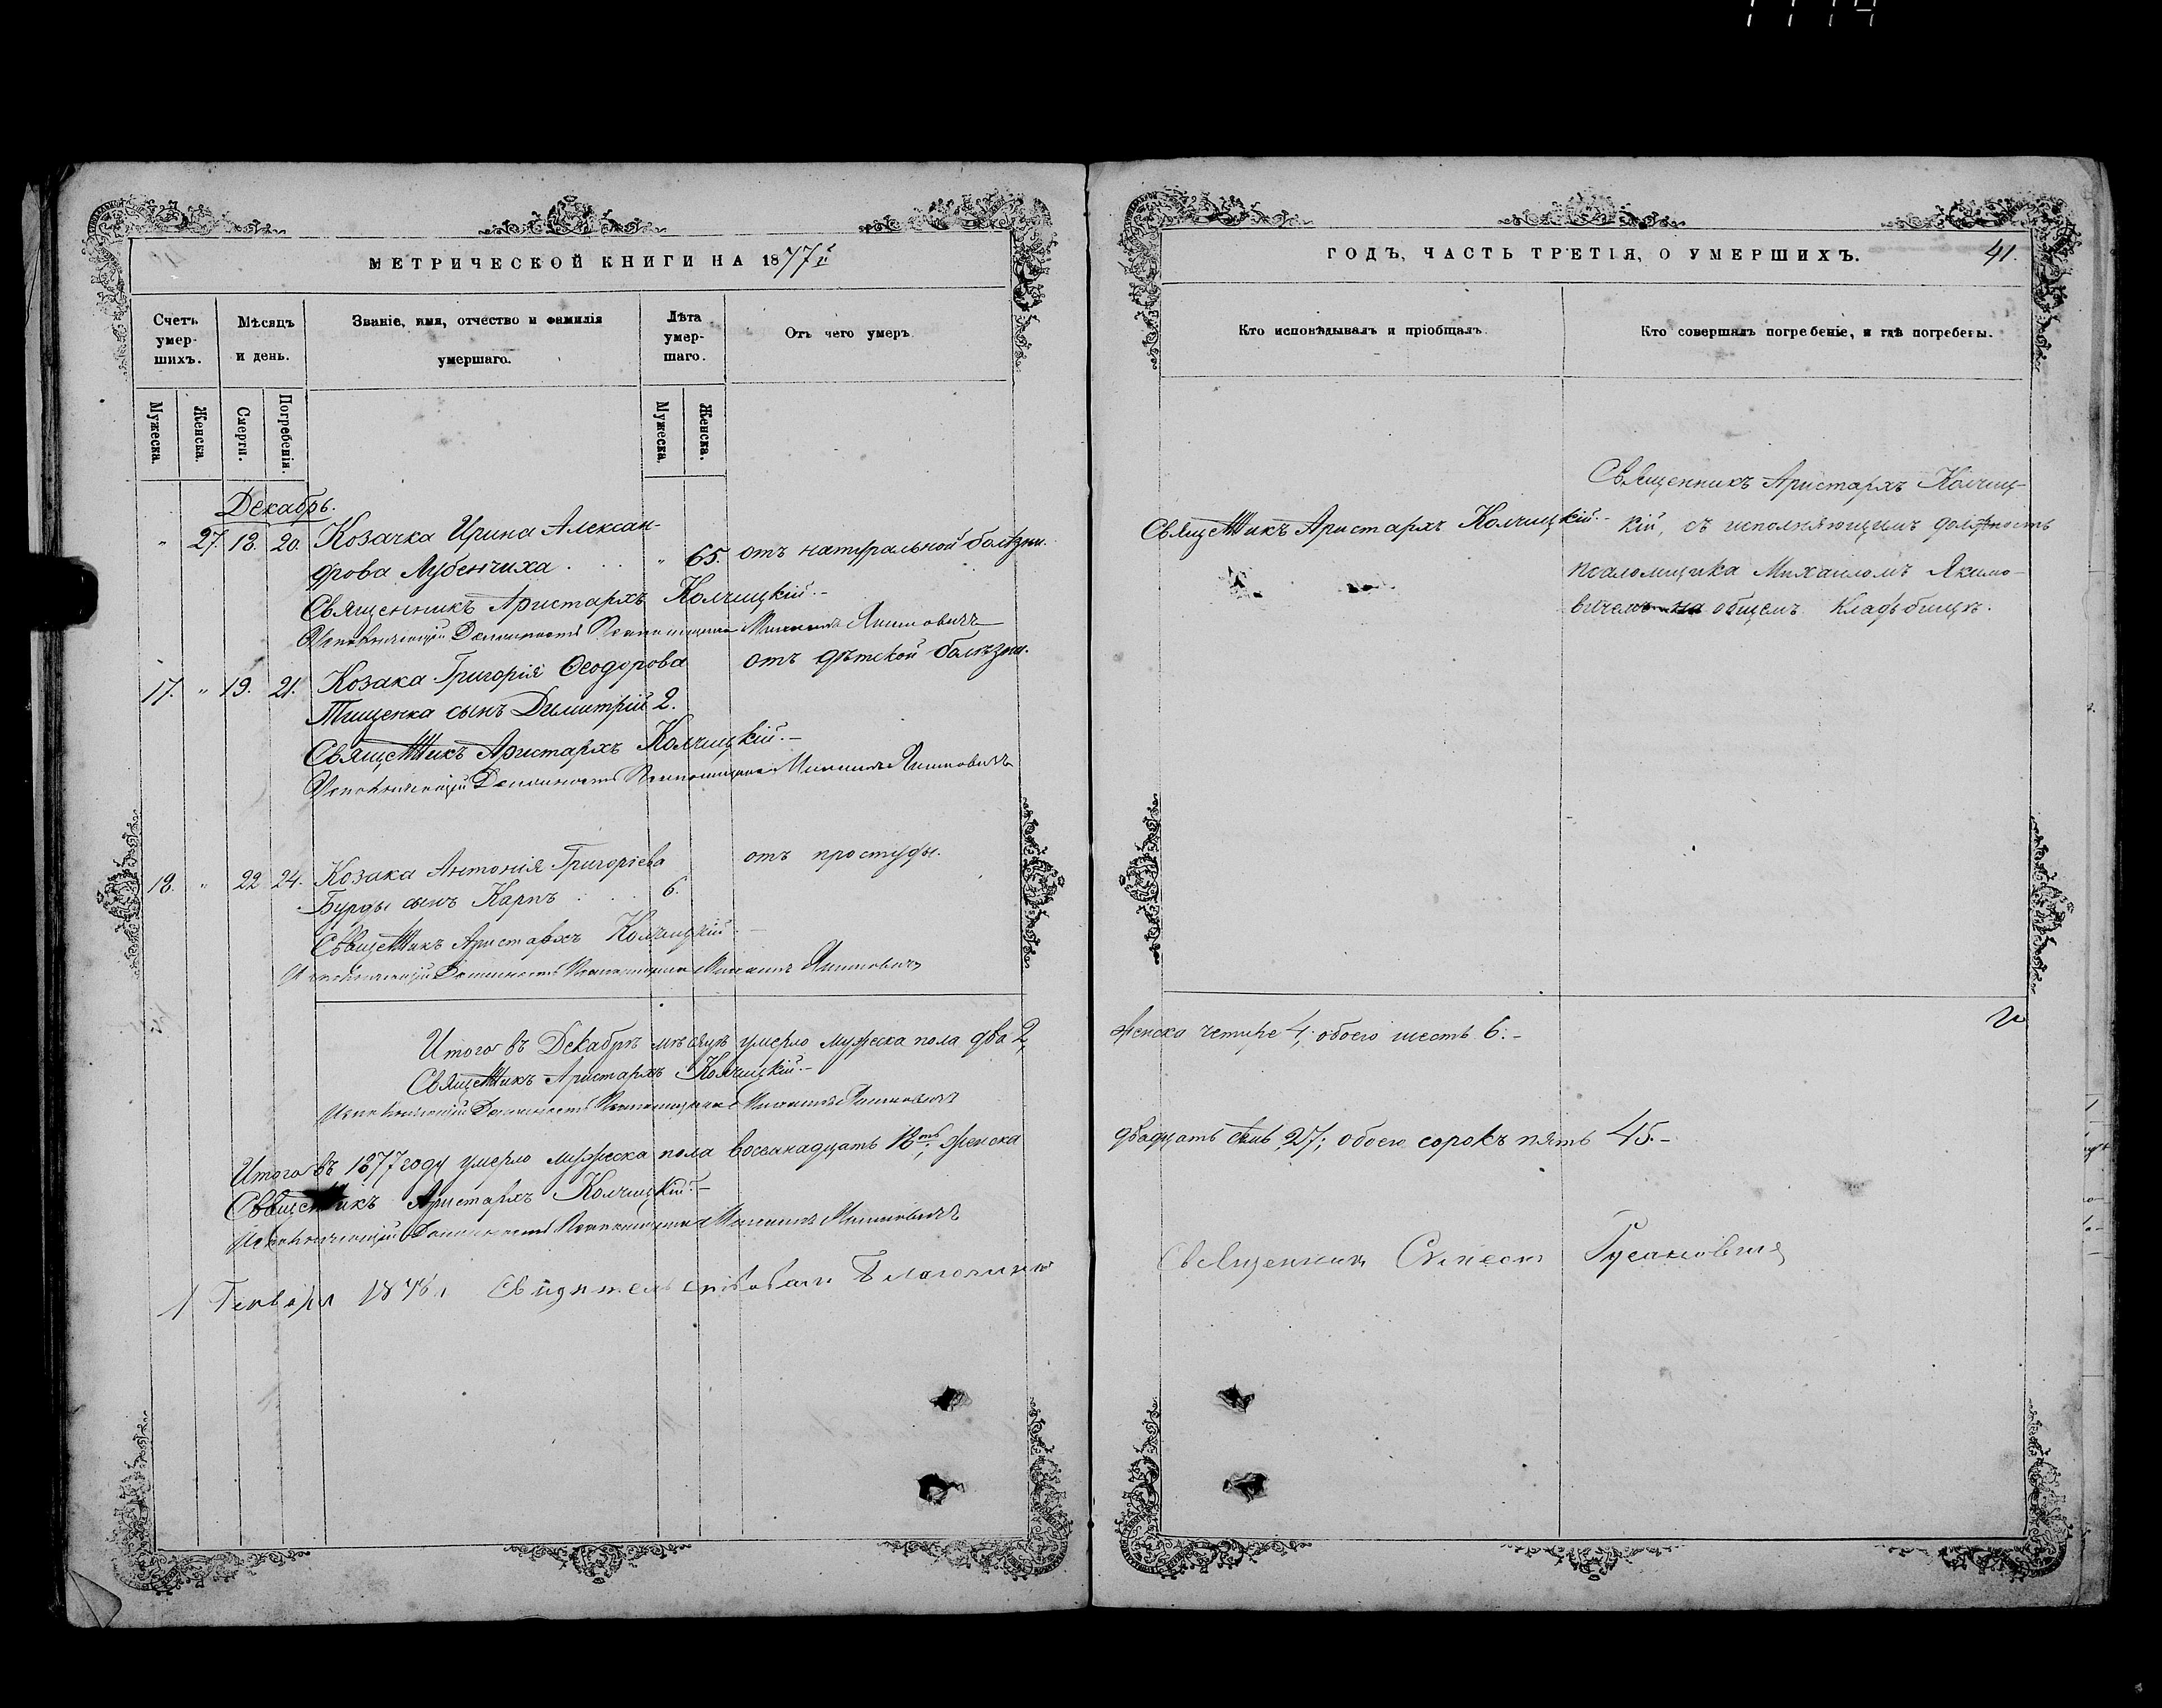 МЕТРИЧЕСКОЙ КНИГИ НА 1877й
Счетъ умер-шихъ.
Мѣсяцъ и день.
Званіе, имя, отчество и фамилія умершаго.
Лѣта умер-шаго.
Отъ чего умеръ
Мужеска.
Женска.
Смерти.
Погребенія.
Мужеска.
Женска.
Декабрь.
" 27. 18. 20. Козачка Ирина Алексан-
дрова Лубенчиха . . . " 65. отъ натуральной болѣзни.
Священникъ Аристархъ Колчицкій.-
Исполняющій Должность Псаломщика Михаилъ Якимовичъ
17. " 19. 21. Козака Григорія Ѳеодорова отъ дѣтской болѣзни.
Тищенка сынъ Димитрій 2.
Священникъ Аристархъ Колчицкій.-
Исполняющій Должность Псаломщика Михаилъ Якимовичъ
18. " 22 24. Козака Антонія Григоріева отъ простуды.
Бурды сынъ Карпъ . . . 6.
Священникъ Аристархъ Колчицкій.-
Исполняющій Должность Псаломщика Михаилъ Якимовичъ
Итого въ Декабрѣ мѣсяцѣ умерло мужеска пола два 2,
Священникъ Аристархъ Колчицкій.-
Исполняющій Должность Псаломщика Михаилъ Якимовичъ
Итого въ 1877 году умерло мужеска пола восемнадцать 18ть, женска
Священникъ Аристархъ Колчицкій.-
Исполняющій Должность Псаломщика Михаилъ Якимовичъ
Января Свидѣтельствовалъ Благочинный
ГОДЪ, ЧАСТЬ ТРЕТІЯ, О УМЕРШИХЪ.
41.
Кто исповѣдывалъ и пріобщалъ.
Кто совершалъ погребеніе, и гдѣ погребены.
Священникъ Аристархъ Колчицкій.-
Священникъ Аристархъ Колчиц-
кій, съ исполняющимъ должность
псаломщика Михаиломъ Якимо-
вичемъ на общемъ кладбищѣ.
женска четыре 4; обоего шесть 6.-
двадцать семь 27; обоего сорокъ пять 45.-
Священникъ